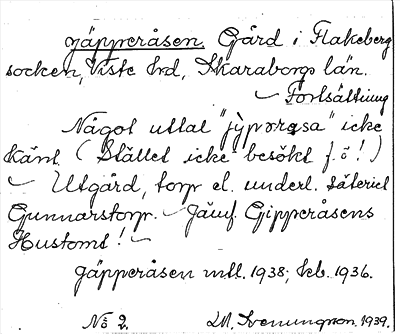 Jäpperåsen, Gård i Flakeberg
socken, Viste hrd, Skaraborgs län.
– Fortsättning
Något uttal "jỳpərasa" icke
känt. (Stället icke besökt f. ö!)
– Utgård, torp el. underl. säteriet
Gunnarstorp. – Jämf Gipperåsens
Hustomt! –
Jäpperåsen mtl. 1938; kb. 1936.
No 2. 1939.